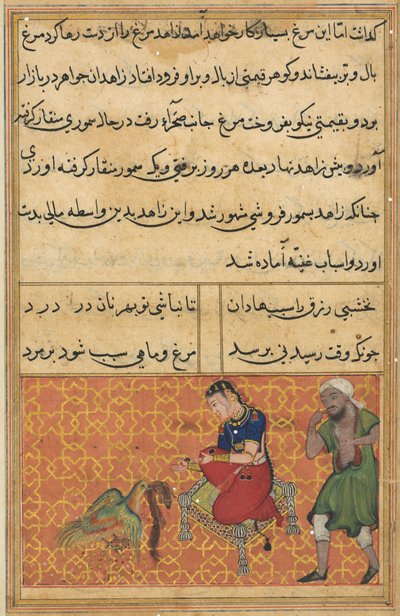 کذاشت اما این مرغ بسیار بکار خواهد آمد زاهد مرغ را از دست رها کرد مرغ
بال و پر بیفشاند و کوهر قیمتی از بال و پر او فرود افتاد زاهد ان جواهر در بازار
برد و بقیمتی نیکو بفروخت مرغ جانب صحرا رفت در حال سموری منقار کرفته
آورد و پیش زاهد نهاد بعده هر روز برفتی و یک سمور بمنقار کرفته اوردی
چنانکه زاهد بسمور فروشی مشهور شد و این زاهد بدین واسطه مالی بدست
اورد و اسباب غنیه آماده شد
نخشبی رزق را سببها دان
تا نباشی تو بهر نان در درد
چونکه وقت رسیدنی برسد
مرغ و ماهی سبب شود بر مرد